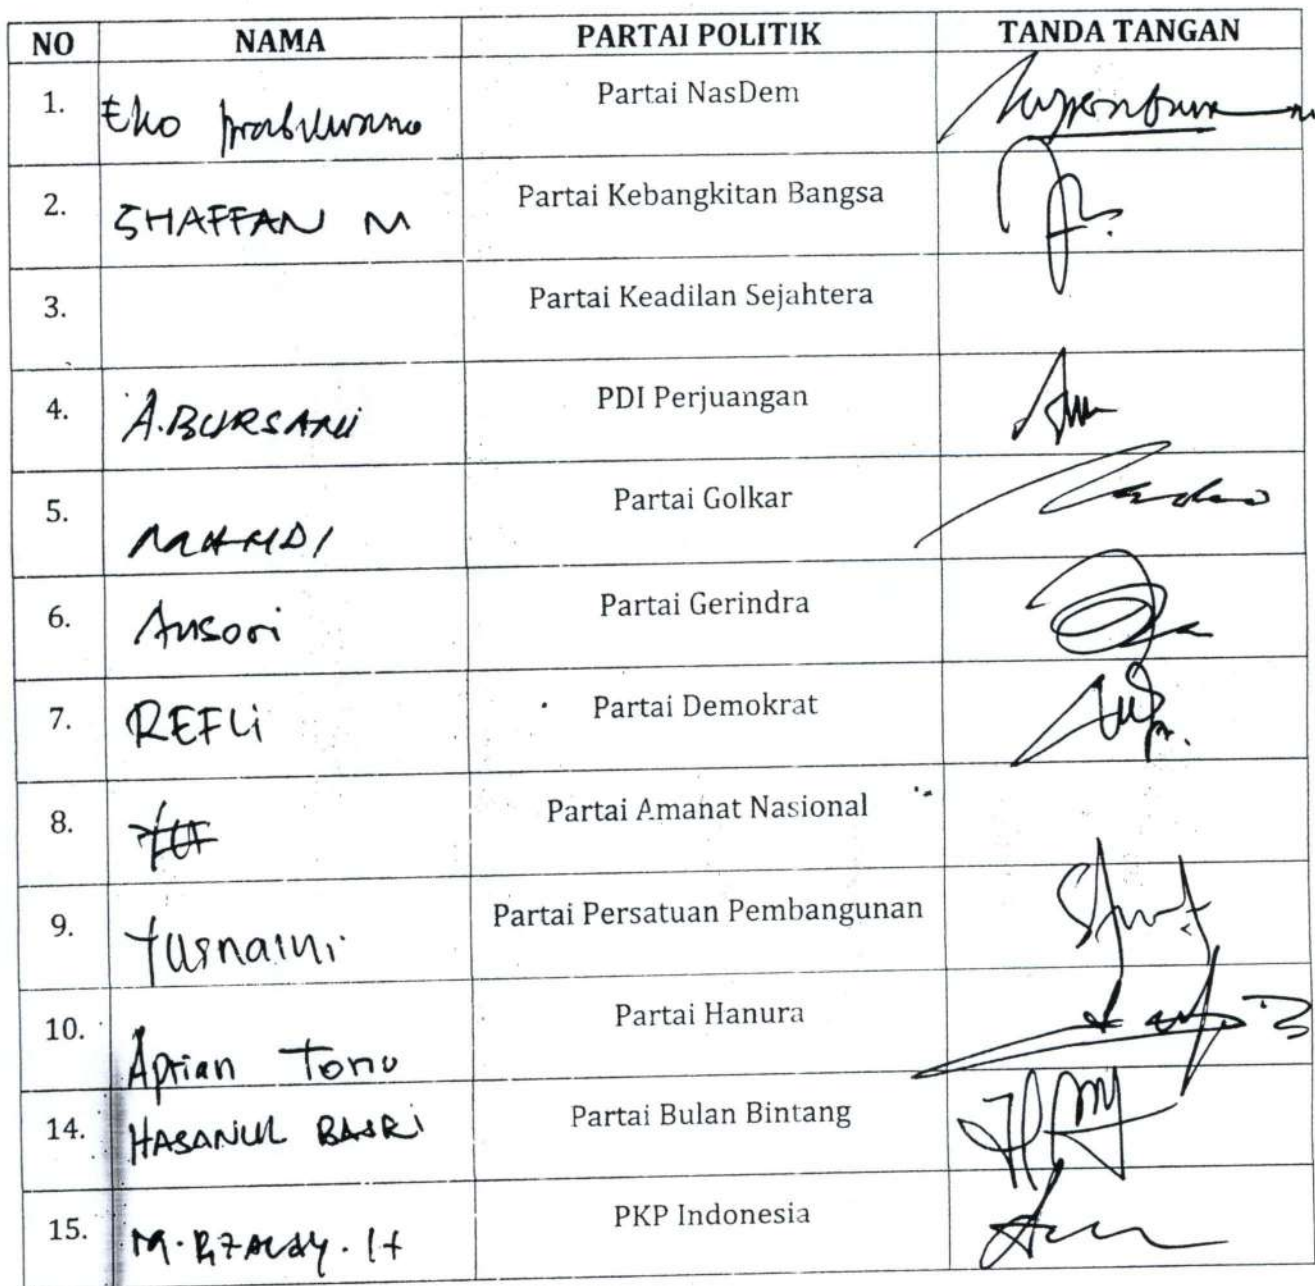 NO NAMA PARTAI POLITIK TANDA TANGAN
1. Eko Partai NasDem
2. SHAFFAN M Partai Kebangkitan Bangsa
3. Partai Keadilan Sejahtera
4. A.BURSANI PDI Perjuangan
5. MAHDI Partai Golkar
6. Ansori Partai Gerindra
7. REFLi Partai Demokrat
8. Partai Amanat Nasional
9. Yusnaini Partai Persatuan Pembangunan
10. Aprian Tono Partai Hanura
14. HASANUL BASRi Partai Bulan Bintang
15. M. PKP Indonesia